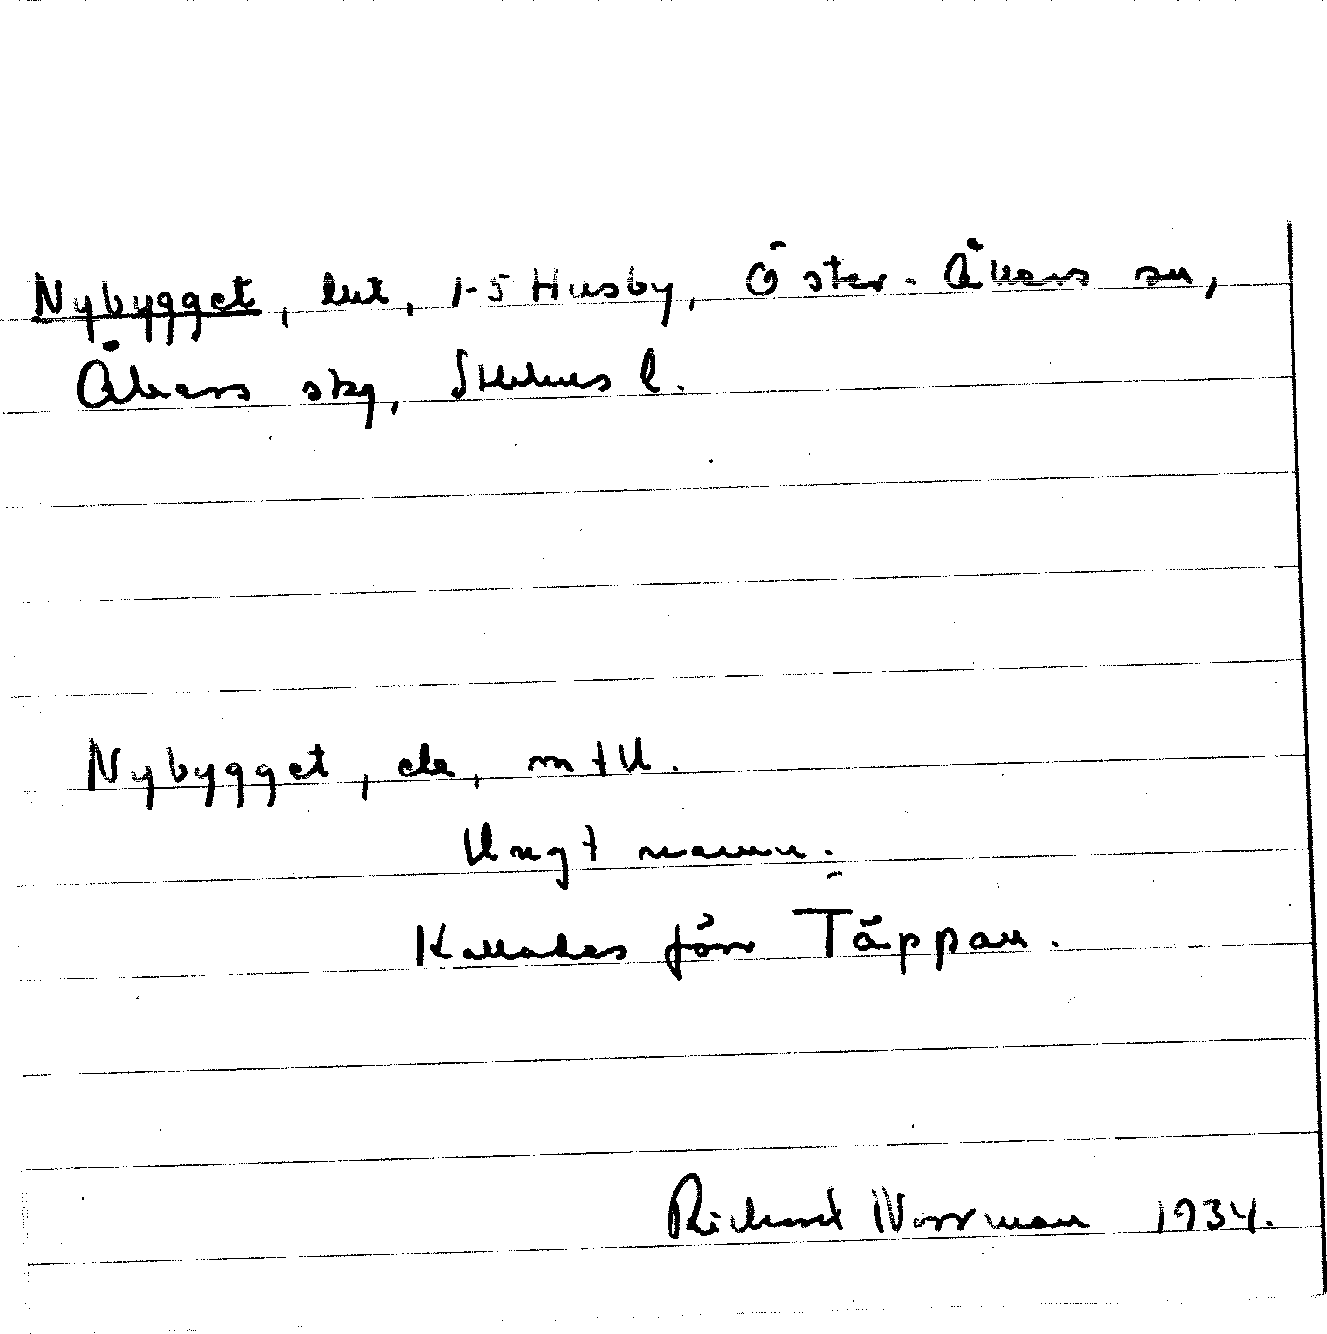 Nybygget, lut, 1-5 Husby, Öster-Åkers sn,
Åkers skg, Sthlms l.
Nybygget, de, mtU.
Ungt namn.
Kallades förr Täppan.
Richard Norrman 1934.